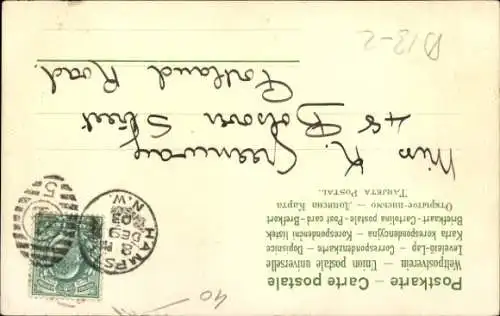 Postkarte – Carte postale
Weltpostverein – Union postale universelle
Levelező-Lap – Correspondenzkarte – Dopisnice
Karta korespondencyjna – Korespondenční lístek
Briefkaart – Cartolina postale – Post card – Brefkort
Открытое письмо – Дописна Карта
TARJETA POSTAL.
Miss K. Greenway
48 Bolsover Street
Portland Road.
HAMPS
N.W.
DE 9
03
5
40
D13-2